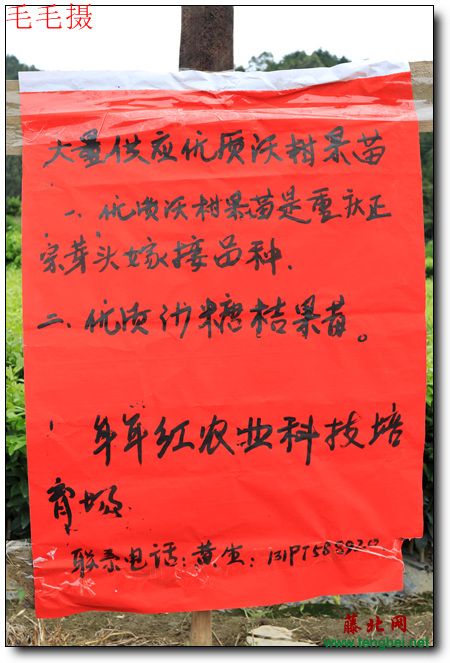 毛毛摄
大量供应优质沃柑果苗
一、优质沃柑果苗是重庆正
宗芽头嫁接品种.
二、优质沙糖桔果苗。
年年红农业科技培
育场
联系电话:黄生:
藤北网
www.tengbei.net